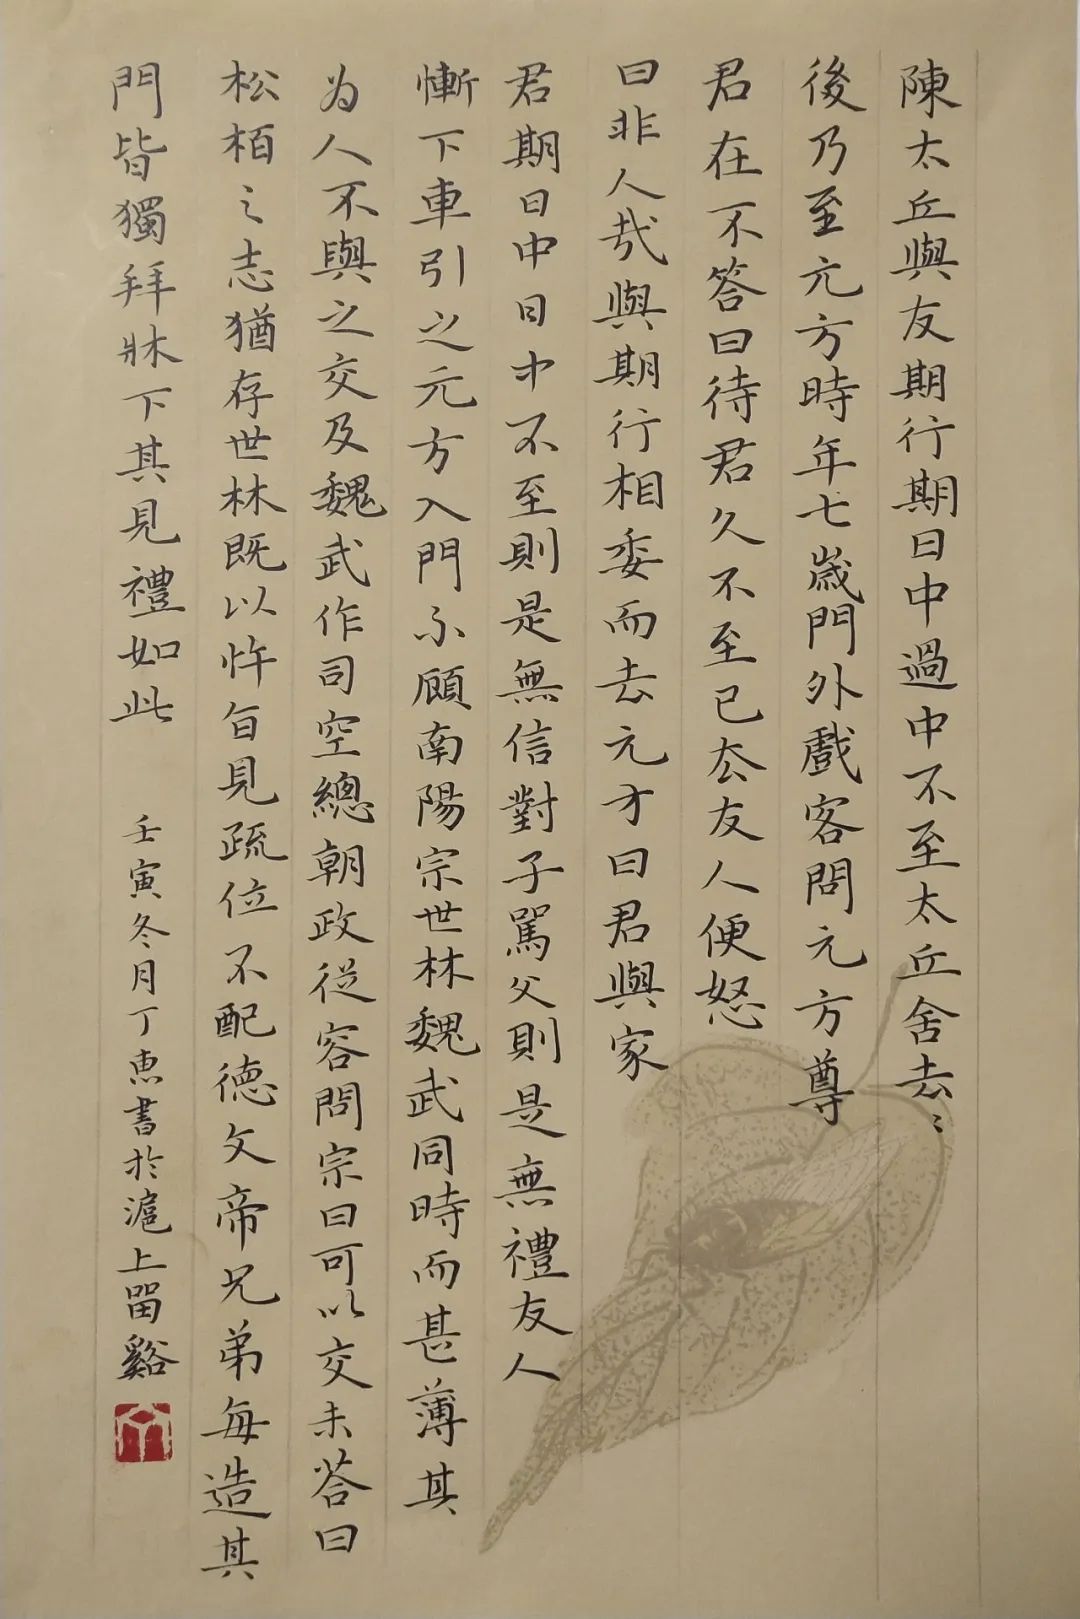 陳太丘與友期行期日中過中不至太丘舍去〻
後乃至元方時年七歲門外戲客問元方尊
君在不答曰待君久不至已去友人便怒
曰非人哉與期行相委而去元方曰君與家
君期日中日中不至則是無信對子罵父則是無禮友人
慚下車引之元方入門不顧南陽宗世林魏武同時而甚薄其
为人不與之交及魏武作司空總朝政從容問宗曰可以交未荅曰
松柏之志猶存世林既以忤旨見疏位不配德文帝兄弟每造其
門皆獨拜牀下其見禮如此
壬寅冬月丁惠書於滬上留谿